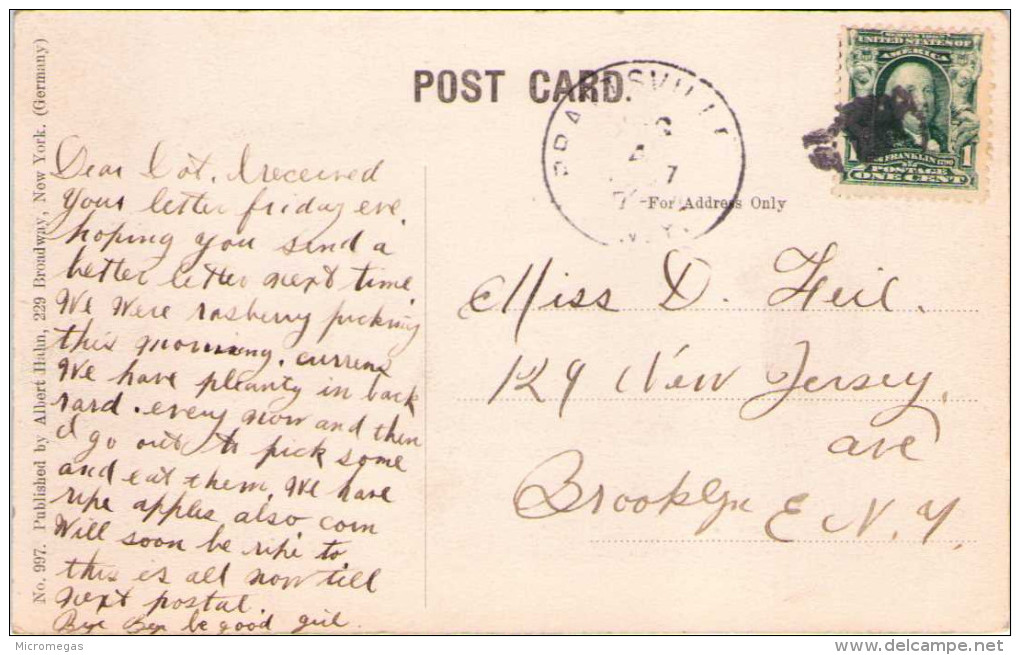 No. 997. Published by Albert Hahn, 229 Broadway, New York. (Germany)
POST CARD.
PRATTSVILLE
4
7
N.Y.
UNITED STATES OF
AMERICA
1 FRANKLIN 1790 1
POSTAGE
ONE CENT
For Address Only
Dear Dot. I received
Your letter friday eve.
hoping you send a
better letter next time.
We Were rasberry picking
this morning. currens
We have pleanty in back
yard. every now and then
I go out to pick some
and eat them. We have
ripe apples also corn
Will soon be ripe to
this is all now till
next postal.
Bye Bye be good girl.
Miss D. Heil.
129 New Jersey.
ave
Brooklyn E N.Y.
Micromegas
www.delcampe.net